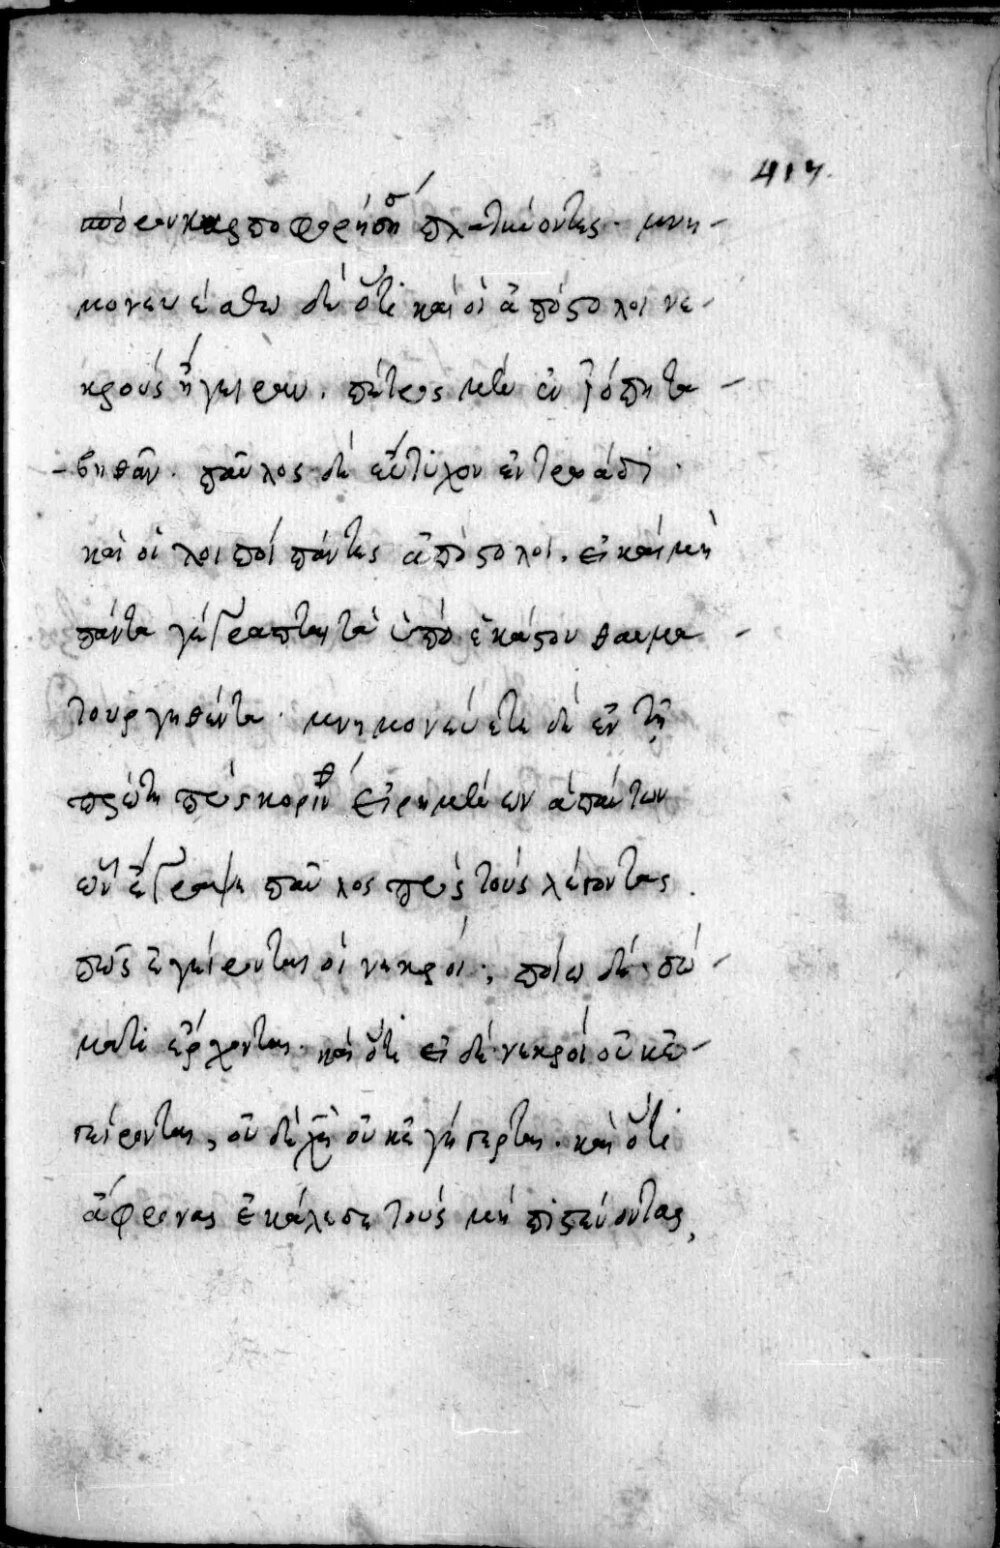 417.
μνη-
μονευέσθω δὲ ὅτι καὶ οἱ ἀπόστολοι νε-
κροὺς ἤγειραν. πέτρος μὲν ἐν ἰόππη τα-
-βηθᾶν. παῦλος δὲ εὔτυχον ἐν τρωάδι.
καὶ οἱ λοιποί πάντες ἀπόστολοι. εἰ καὶ μὴ
πάντα γέγραπται τὰ ὑπὸ ἑκάστου θαυμα-
τουργηθέντα. μνημονεύετε δὲ ἐν τῇ
πρώτη πρὸς κορινθ εἰρημένων ἁπάντων
ὧν ἔγραψε παῦλος πρὸς τοὺς λέγοντας.
πῶς ἐγείρονται οἱ νεκροί; ποίω δὲ σώ-
ματι ἔρχονται. καὶ ὅτι εἰ δὲ νεκροὶ οὐκ ἐ-
γείρονται, οὐδὲ χς οὐκ ἐγήγερται. καὶ ὅτι
ἄφρονας ἐκάλεσε τοὺς μὴ πιστεύοντας,